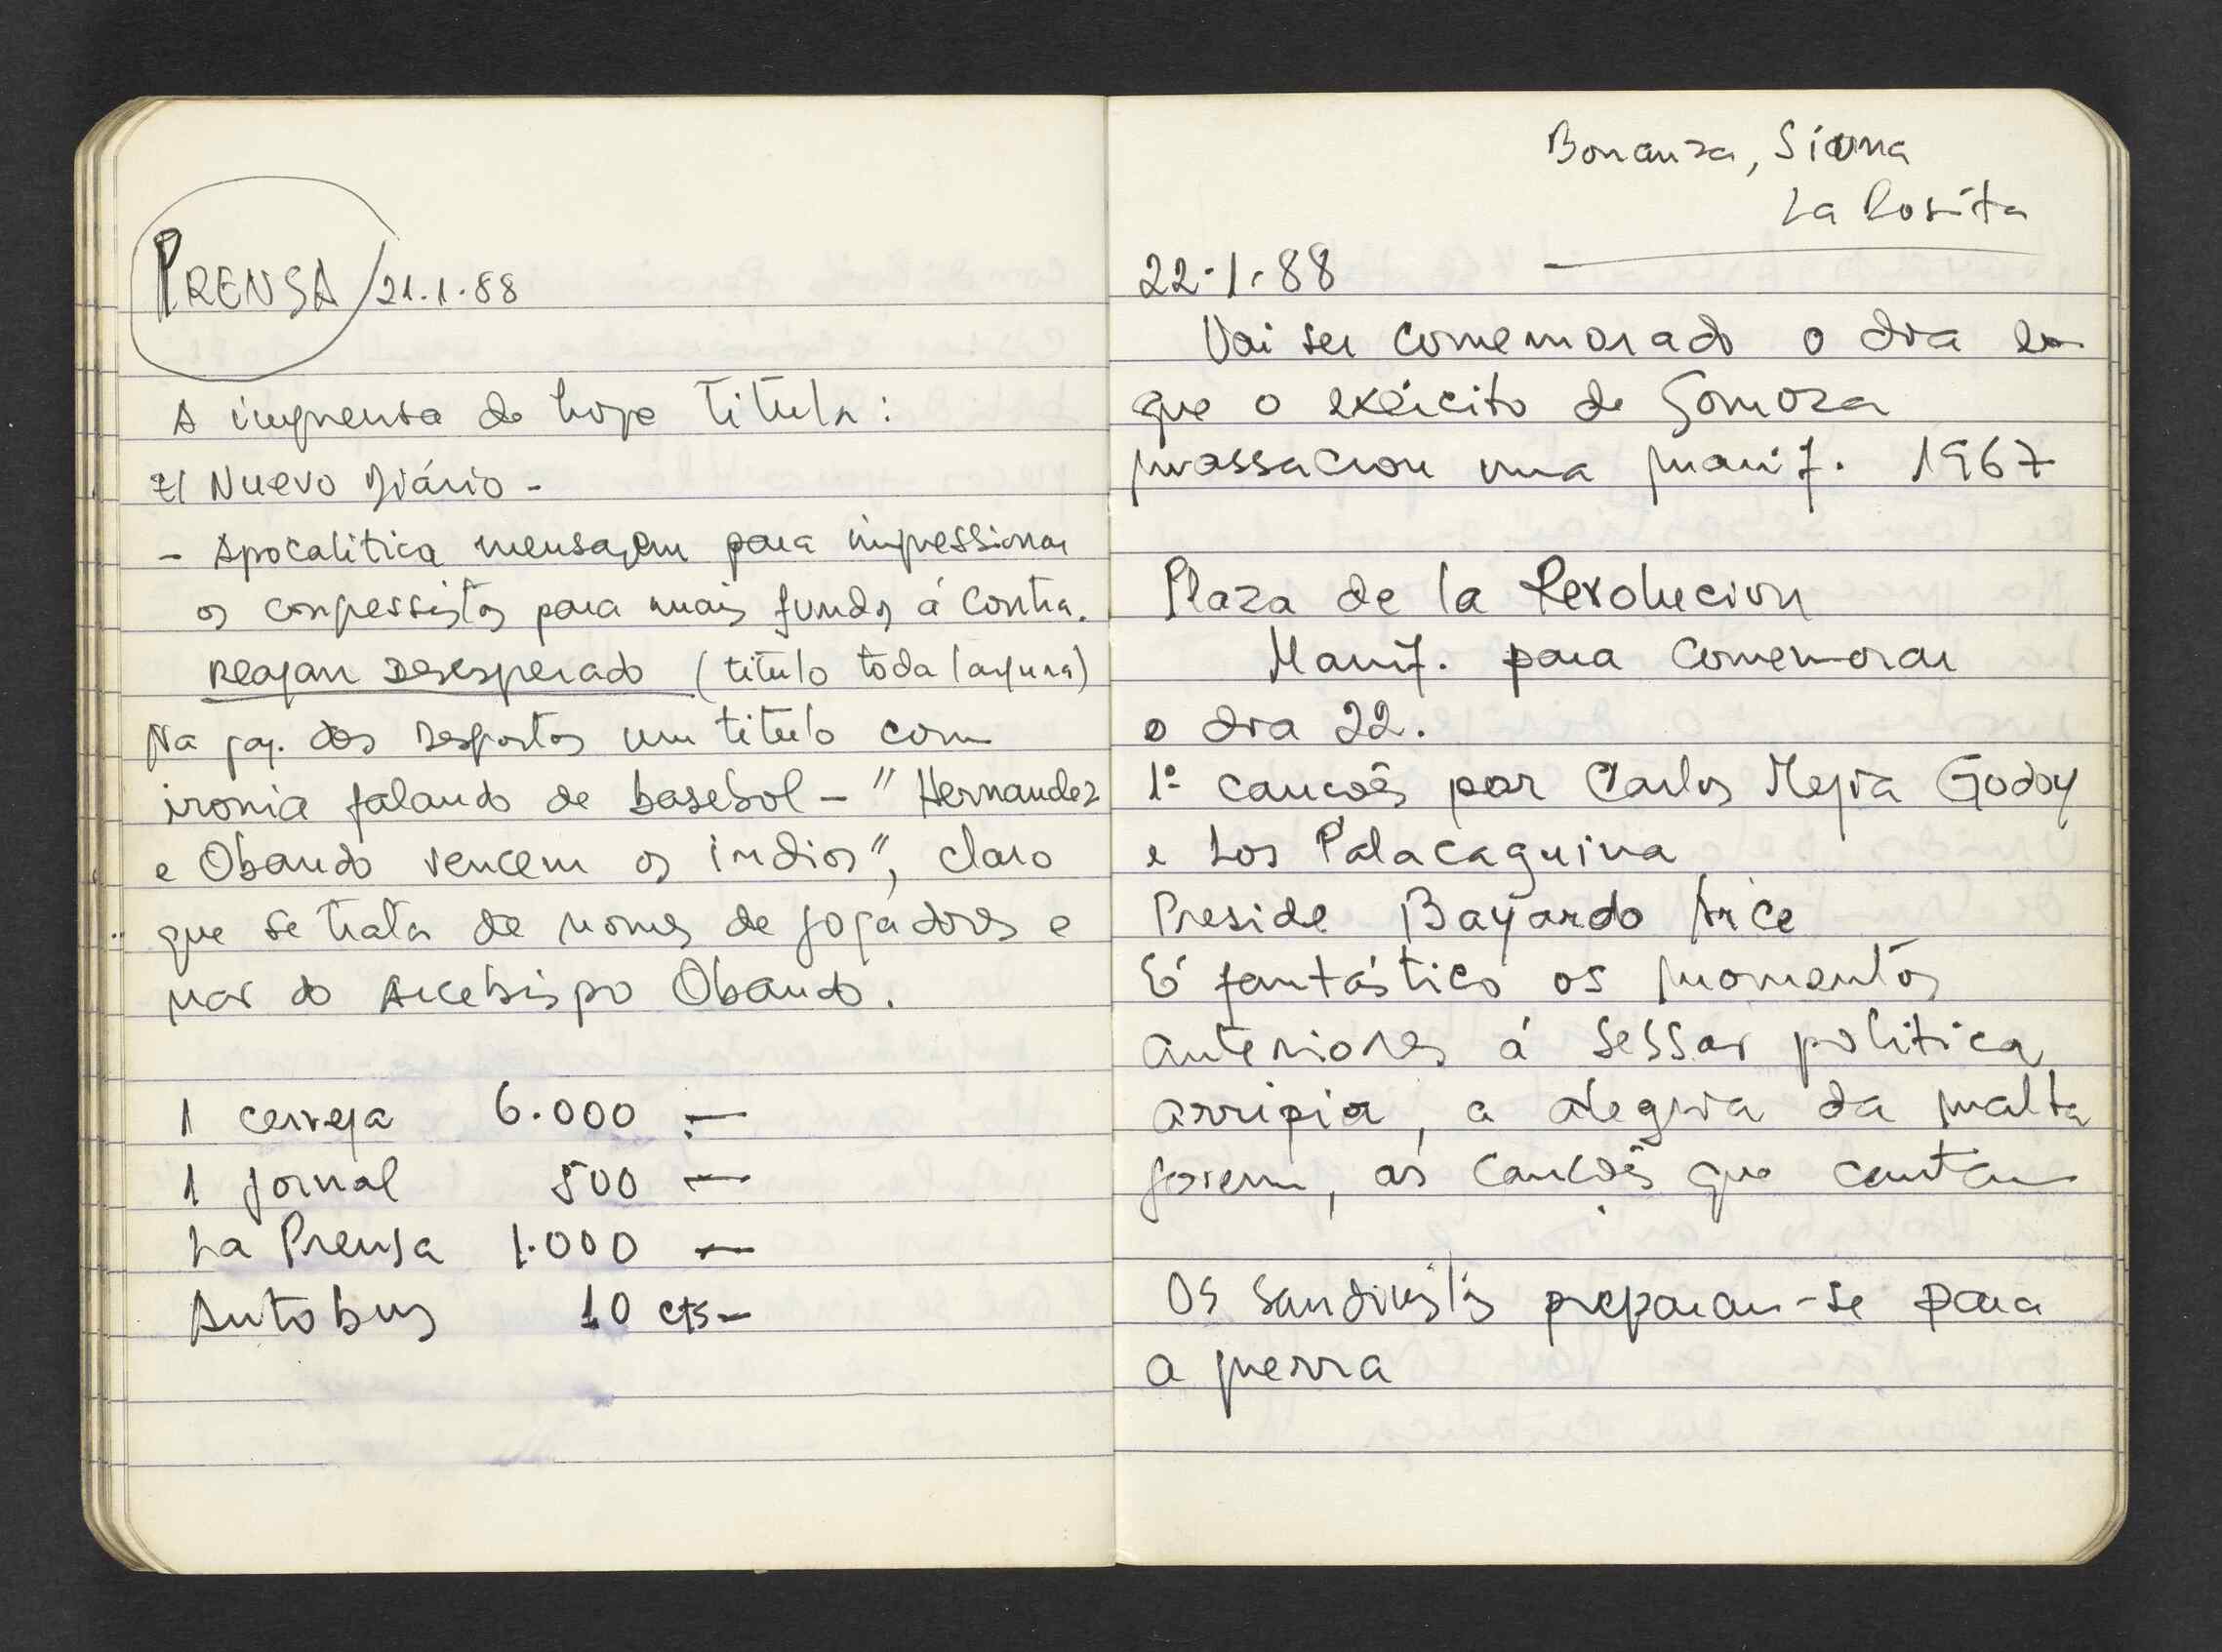 PRENSA / 21.1.88
A imprensa de hoje titula:
El Nuevo Diário -
- Apocalitica mensagem para impressionar
os congressistas para mais fundos á Contra.
Reagan Desesperado (titulo toda largura)
Na pag. dos Desportos um titulo com
ironia falando de basebol - "Hernandez
e Obando vencem os indios", claro
que se trata de nomes de jogadores e
nao do Arcebispo Obando.
1 cerveja 6.000 -
1 jornal 500 -
La Prensa 1.000 -
Autobus 10 cts -
Bonanza, Siuna
La Rosita
22.1.88
Vai ser comemorado o dia em
que o exército de Somoza
massacrou uma manif. 1967
Plaza de la Revolucion
Manif. para comemorar
o dia 22.
1º cancões por Carlos Mejia Godoy
e Los Palacaguina
Preside Bayardo Arce
É fantástico os momentos
anteriores á sessao politica
arripia, a alegria da malta
jovem, as cancões que cantam
Os Sandinistas preparam-se para
a guerra